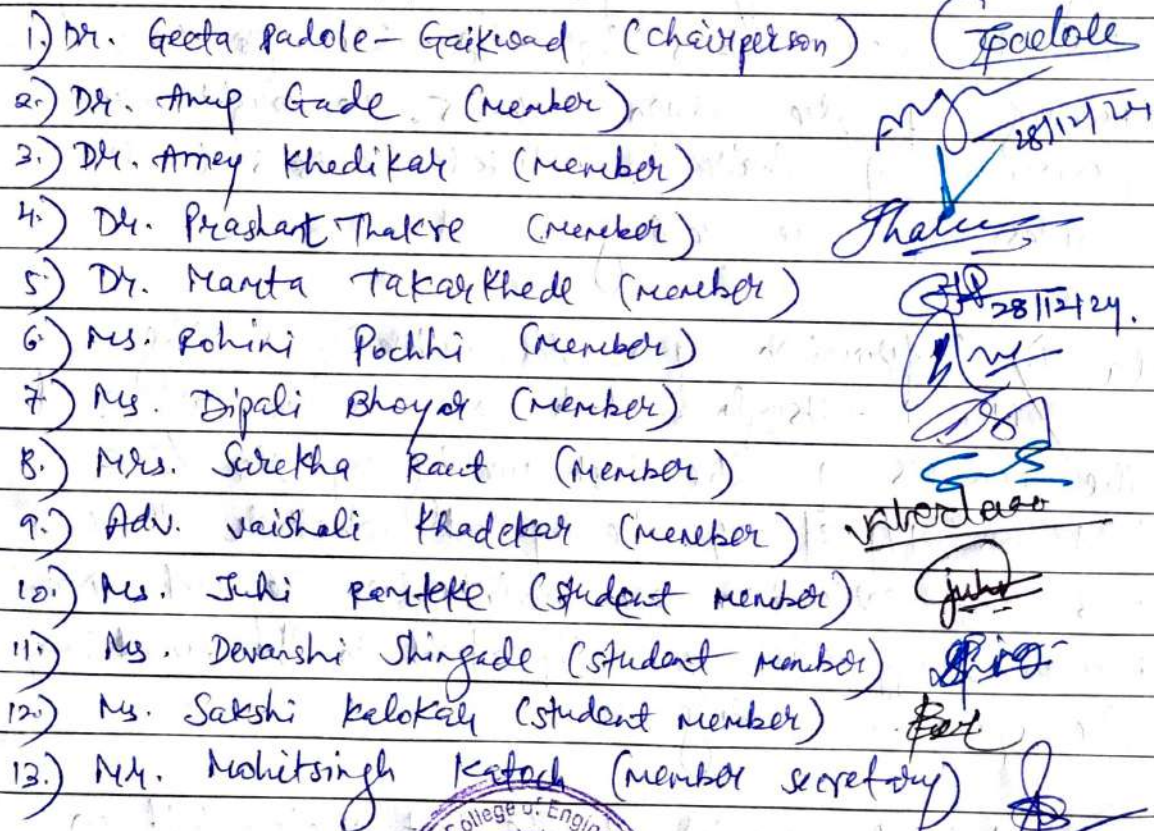 1.) Dr. Geeta Padole - Gaikwad (Chairperson) Gpadole
2.) Dr. Anup Gade (Member) 28/12/24
3.) Dr. Amey Khedikar (Member)
4.) Dr. Prashant Thakre (Member)
5.) Dr. Mamta Takarkhede (Member) 28/12/24.
6.) Ms. Rohini Pochhi (Member)
7.) Ms. Dipali Bhoyar (Member)
8.) Mrs. Surekha Raut (Member)
9.) Adv. Vaishali Khadekar (Member)
10.) Ms. Juhi Ramteke (Student member) Juhi
11.) Ms. Devanshi Shingade (Student member)
12.) Ms. Sakshi Kalokar (Student member)
13.) Mr. Mohitsingh Katoch (member secretary)
College of Engin